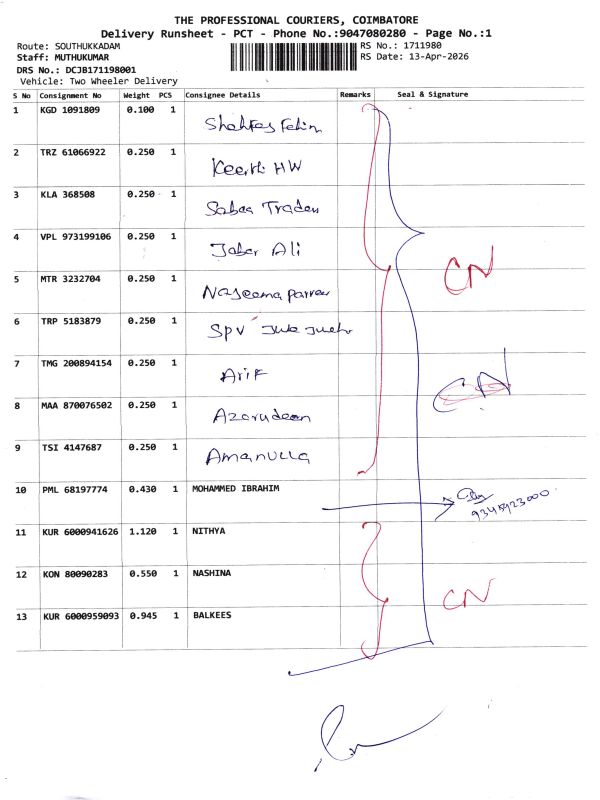 THE PROFESSIONAL COURIERS, COIMBATORE
Delivery Runsheet - PCT - Phone No.:9047080280 - Page No.:1
Route: SOUTHUKKADAM
Staff: MUTHUKUMAR
DRS No.: DCJB171198001
Vehicle: Two Wheeler Delivery
RS No.: 1711980
RS Date: 13-Apr-2026
S No Consignment No Weight PCS Consignee Details Remarks Seal & Signature
1 KGD 1091809 0.100 1
2 TRZ 61066922 0.250 1 Keerthi HW
3 KLA 368508 0.250 1 Sabaa Traders
4 VPL 973199106 0.250 1 Jaber Ali
5 MTR 3232704 0.250 1 Naseema parveen
6 TRP 5183879 0.250 1 SPV
7 TMG 200894154 0.250 1 Arif
8 MAA 870076502 0.250 1 Azarudeen
9 TSI 4147687 0.250 1 Amanulla
CN
CN
10 PML 68197774 0.430 1 MOHAMMED IBRAHIM
11 KUR 6000941626 1.120 1 NITHYA
12 KON 80090283 0.550 1 NASHINA
13 KUR 6000959093 0.945 1 BALKEES
CN